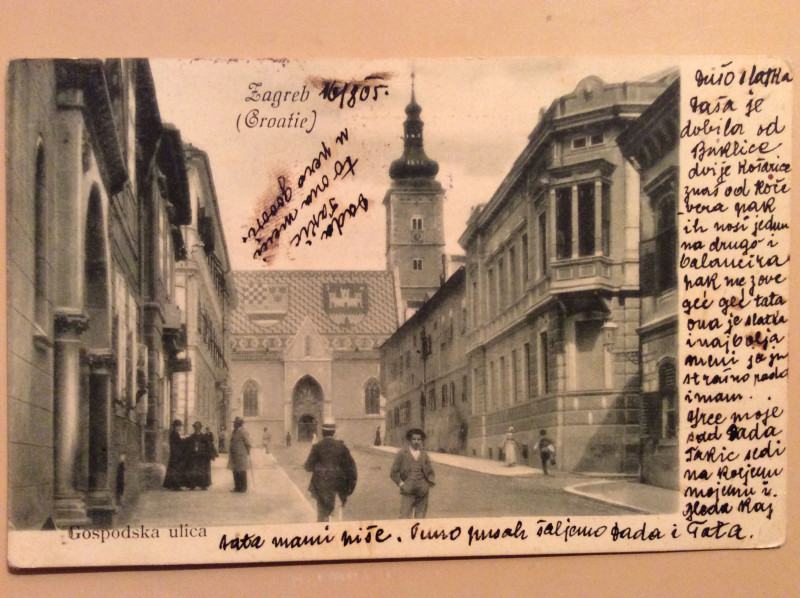 Zagreb 16/805.
(Croatie)
Dada
Takić
to ona meni
u pero govori.
Dušo slatka
Daša je
dobila od
dvije košarice
znaš od
pak
ih nosi jednu
na drugo i
balancira
pak me zove
geć geć tata
ona je slatka
i najbolja
meni ja ju
strašno rado
imam.
Srce moje
sad Dada
Takic sedi
na koljenu
mojemu i
gleda kaj
Gospodska ulica
tata mami piše. Puno pusah šaljemo Dada i Tata.